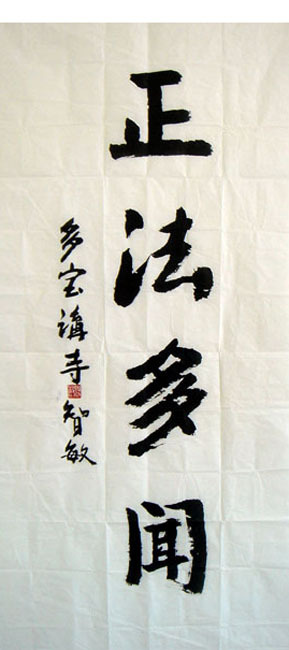 正法多闻
多宝讲寺智敏